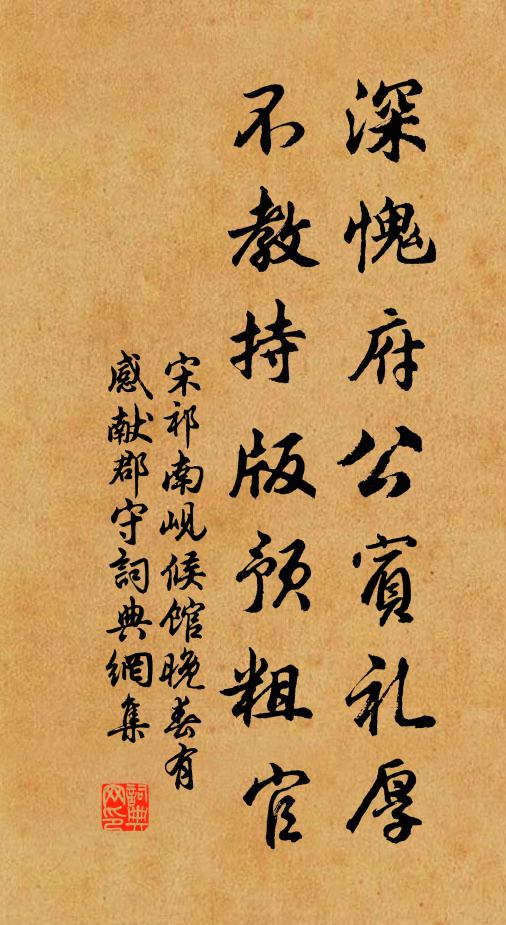 深愧府公賓礼厚
不教持版预粗官
宋祁南岘候馆晚春有
感献郡守詞典網集
詞典網印